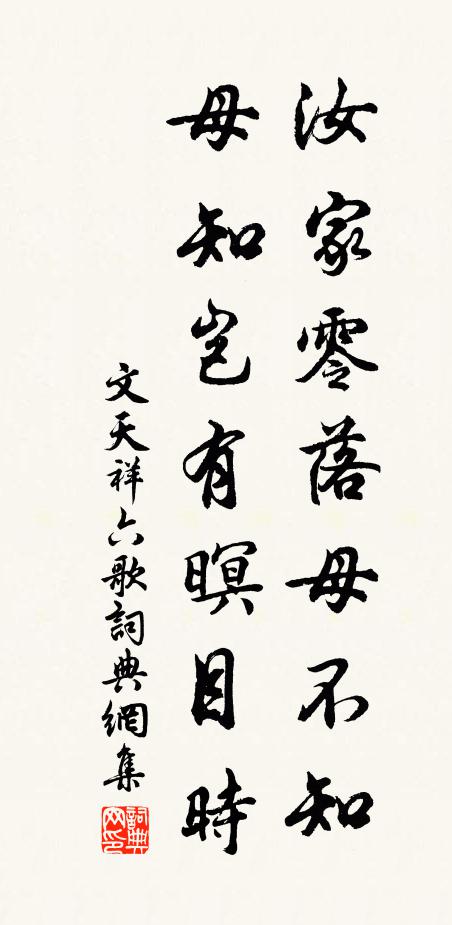 汝家零落母不知
母知岂有暝目時
文天祥六歌詞典網集
詞典
网印